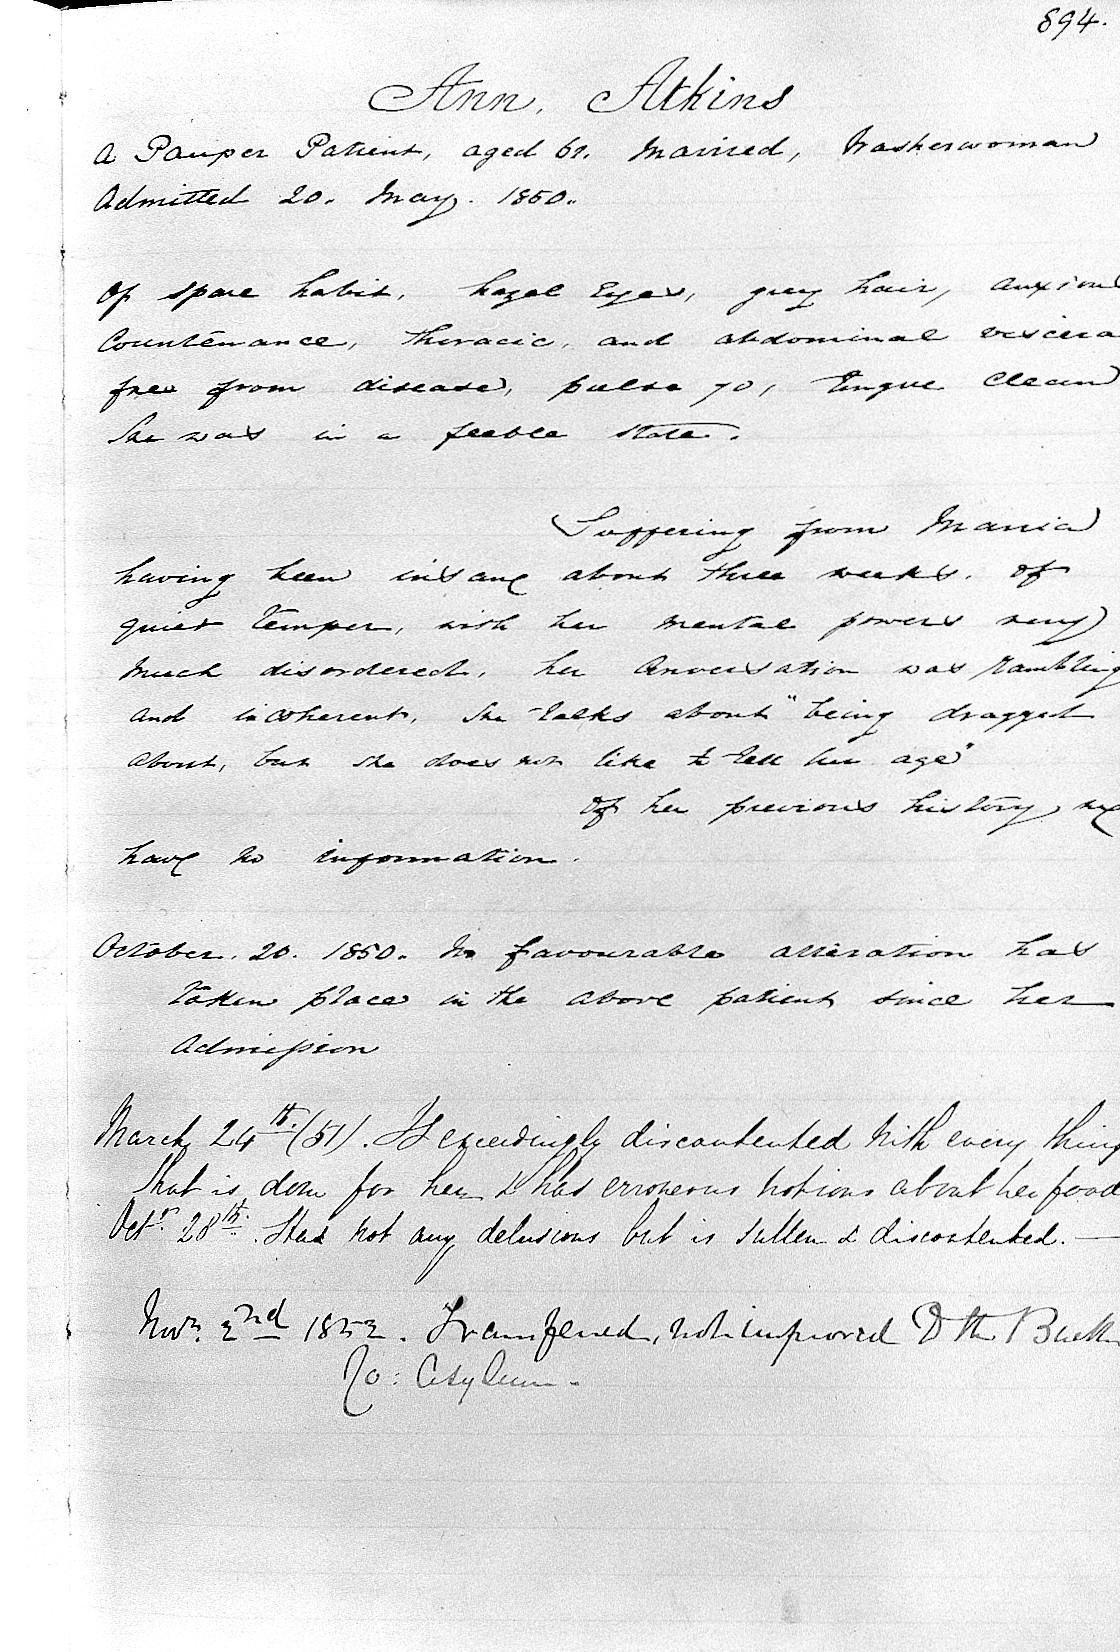 894.
Ann, Atkins
A Pauper Patient, aged 61. Married, Washerwoman
Admitted 20. May. 1850.
Of spare habit, hazel Eyes, grey hair, anxious
Countenance, thoracic, and abdominal viscera
free from disease, pulse 70, tongue clean
She was in a feeble state.
Suffering from Mania
having been insane about three weeks. Of
quiet temper, with her mental powers very
much disordered, her Conversation was rambling
and incoherent, She talks about "being dragged
about, but she does not like to tell her age"
Of her previous history we
have no information.
October. 20. 1850. No favourable alteration has
taken place in the above patient since her
Admission
March 24th. (51). Is exceedingly discontented with every thing
that is done for her & has erroneous notions about her food
Octr. 28th. Has not any delusions but is sullen & discontented. —
Novr. 2nd 1852. Transfered, not improved to the Buck
Co: Asylum.